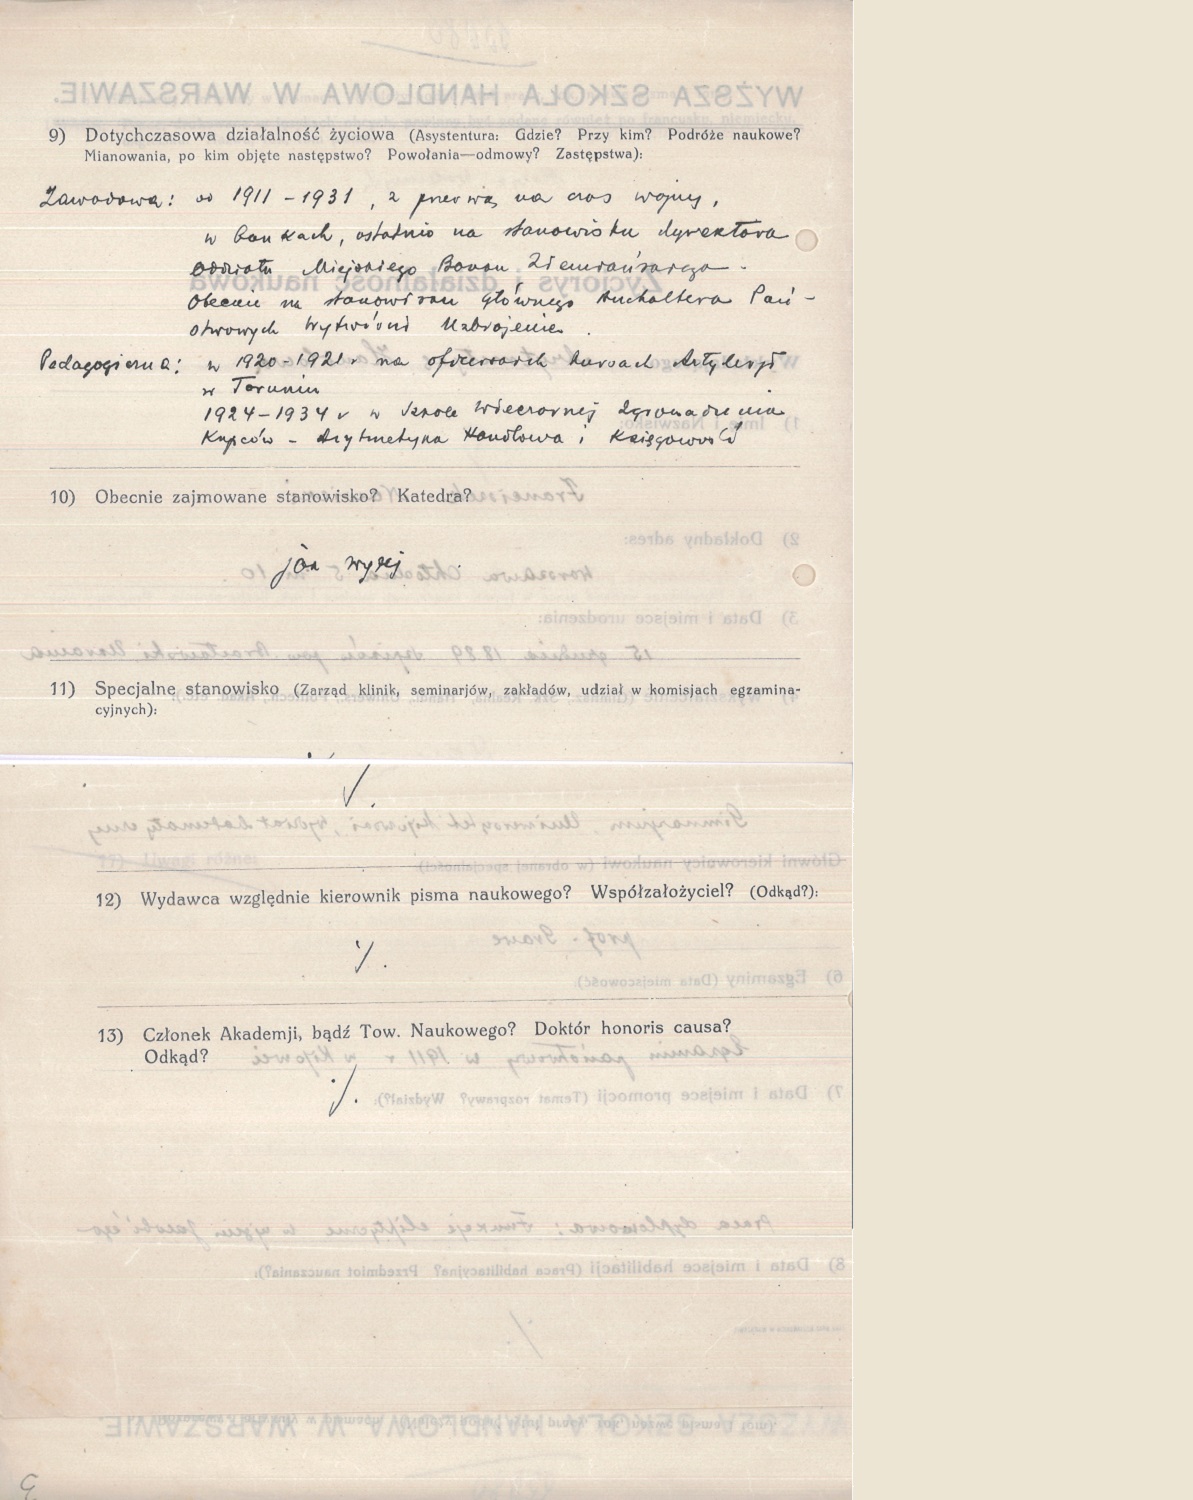 9) Dotychczasowa działalność życiowa (Asystentura: Gdzie? Przy kim? Podróże naukowe?
Mianowania, po kim objęte następstwo? Powołania—odmowy? Zastępstwa):
Zawodowa: od 1911 – 1931, z przerwą na czas wojny,
w bankach, ostatnio na stanowisku dyrektora
oddziału Miejskiego Banku Ziemiańskiego.
Obecnie na stanowisku głównego buchaltera Pań-
stwowych Wytwórni Uzbrojenia.
Pedagogiczna: w 1920-1921 r na oficerskich kursach Artylerji
w Toruniu
1924-1934 r w Szkole Wieczornej Zgromadzenia
Kupców - Arytmetyka Handlowa i Księgowość
10) Obecnie zajmowane stanowisko? Katedra?
jak wyżej
11) Specjalne stanowisko (Zarząd klinik, seminarjów, zakładów, udział w komisjach egzamina-
cyjnych):
12) Wydawca względnie kierownik pisma naukowego? Współzałożyciel? (Odkąd?):
13) Członek Akademji, bądź Tow. Naukowego? Doktór honoris causa?
Odkąd?